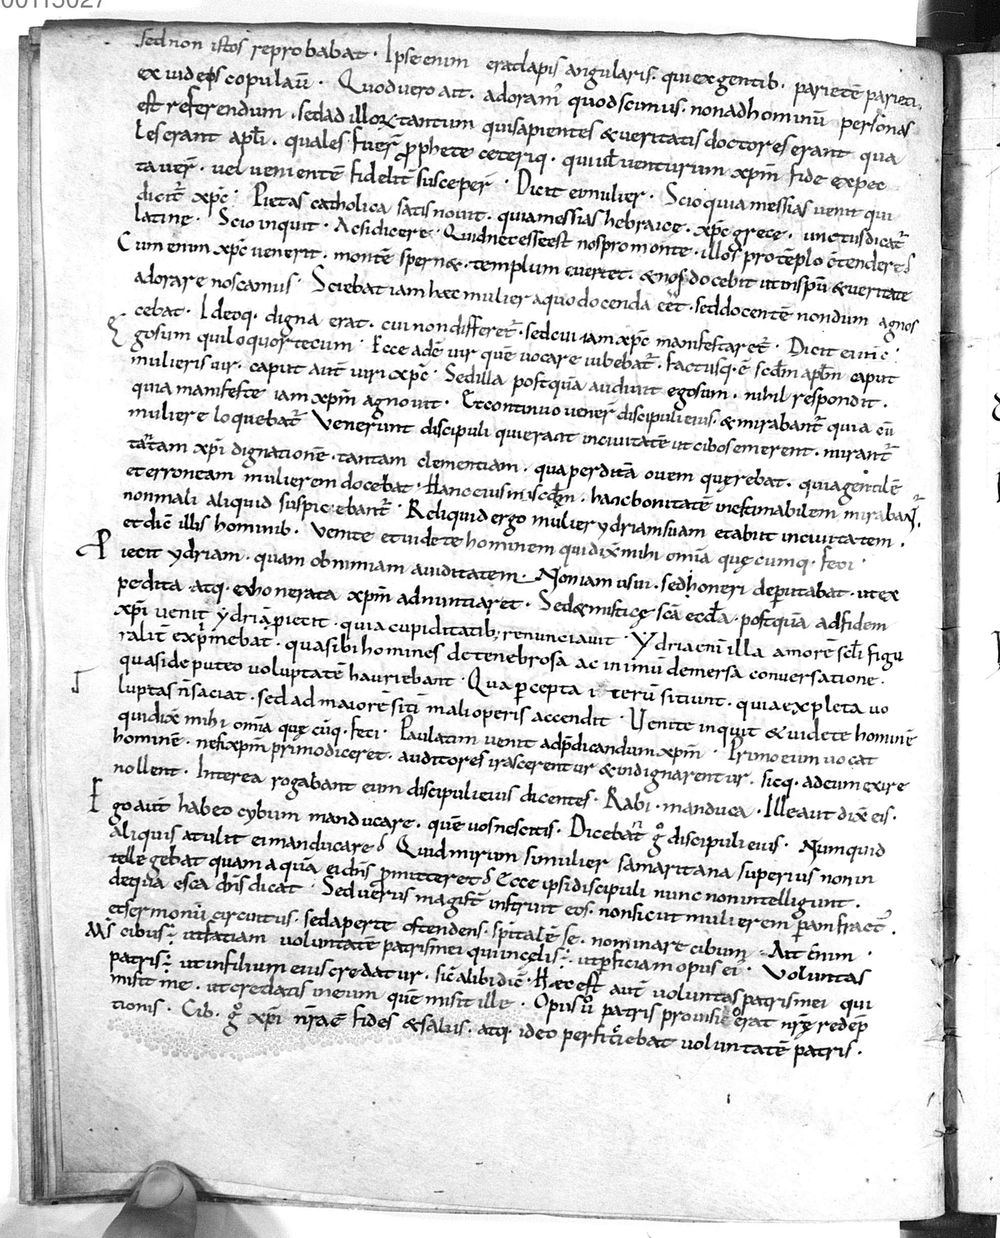 00113027
sed non istos reprobabat · Ipse enim erat lapis angularis · qui ex gentib; parietē parieti,
ex iudęis copulauit · Quod uero ait · adoramꝰ quod scimus · non ad hominū personas
est referendum · sed ad illoꝝ tantum qui sapientes & ueritatis doctores erant qua
les erant apl̄i · quales fuer̄ ꝓphete ceteriq; qui ul̄ uenturum xp̄m fide expec
tauer̄ · uel uenientē fidelit̄ susceper̄ · Dicit ei mulier · Scio quia messias uenit qui
dicit̄ xp̄c · Pietas catholica satis nouit · quia messias hebraice · xp̄c grece · unctus dicat̄
latine · Scio inquit · Ac si diceret · Quid necesse est nos pro monte · illos pro tēplo c̄tendere
Cum enim xp̄c uenerit · montē spern& · templum euertet · & nos docebit ut in sp̄u & ueritate
adorare noscamus · Sciebat iam hęc mulier a quo docenda eēt · sed docentē nondum agnos
cebat · Ideoq; digna erat · cui non differet̄ · sed cui iam xp̄c manifestaret̄ · Dicit ei ih̄c ·
gosum qui loquor tecum · Ecce adē uir quē uocare iubebat̄ · Factusq; ē scd̄m apl̄m caput
mulieris uir · caput aut̄ uiri xp̄c · Sed illa postquā audiuit ego sum · nihil respondit ·
quia manifeste iam xp̄m agnouit · Et continuo uener̄ discipuli eius · & mirabant̄ quia cū
muliere loquebat̄ Venerunt discipuli qui erant in ciuitatē ut cibos emerent · mirant̄
tantam xp̄i dignationē · tantam clementiam · qua perditā ouem quęrebat · quia gentilē
et erroneam mulierem docebat · Hanc eius · hanc bonitatē inestimabilem miraban̄t ·
non mali aliquid suspiciebant̄ · Reliquid ergo mulier ydriam suam et abiit in ciuitatem ·
et dic̄ illis hominib; Venite et uidete hominem qui dix̄ mihi om̄ia quęcumq; feci ·
Piecit ydriam · quam ob nimiam auiditatem · Non iam usui · sed honeri deputabat · ut ex
pedita atq; exhonerata xp̄m adnuntiaret · Sed & mistice sc̄a eccl̄a · postquā ad fidem
xp̄i uenit ydriā piecit · quia cupiditatib; renunciauit · Ydria eni illa amorē scl̄i figu
ralit̄ exp̄mebat · qua sibi homines de tenebrosa ac in imū demersa conuersatione ·
quasi de puteo uoluptatē hauriebant · Qua ꝑcepta iterū sitiunt · quia expleta uo
luptas n̄ saciat · sed ad maiorē sitī mali operis accendit · Uenite inquit & uidete hominē
qui dix̄ mihi om̄ia quęcūq; feci · Paulatim uenit ad p̄dicandum xp̄m · Primo eum uocat
hominē · ne si xp̄m primo diceret · auditores irascerentur & indignarentur · sicq; ad eum exire
nollent · Interea rogabant eum discipuli eius dicentes · Rabi · manduca · Ille aut̄ dix̄ eis ·
Ego aut̄ habeo cybum manducare · quē uos nescitis · Dicebat̄ ḡ discipuli eius · Numquid
aliquis atulit ei manducare · Quid mirum si mulier samaritana superius non in
tellegebat quam aquā ei dn̄s ꝓmitteret · Ecce ipsi discipuli nunc non intelligunt ·
de qua esca dn̄s dicat · Sed uerus magist̄ instruit eos · non sicut mulierem ꝑ anfract̄ ·
et sermonū circuitus · sed aperte ostendens · sp̄italē se nominare cibum · Ait enim ·
Ms cibus · ut faciam uoluntatē patris mei qui in celis · ut ꝑficiam opus ei · Voluntas
patris · ut in filium eius credatur · sic̄ alibi dic̄ · Hęc est aut̄ uoluntas patris mei qui
misit me · ut credatis in eum quē misit ille · Opus ū patris promisit erat nr̄ę redēp
tionis · Cib; ḡ xp̄i nr̄ae fides & salus · atq; ideo perficiebat uoluntatē patris ·